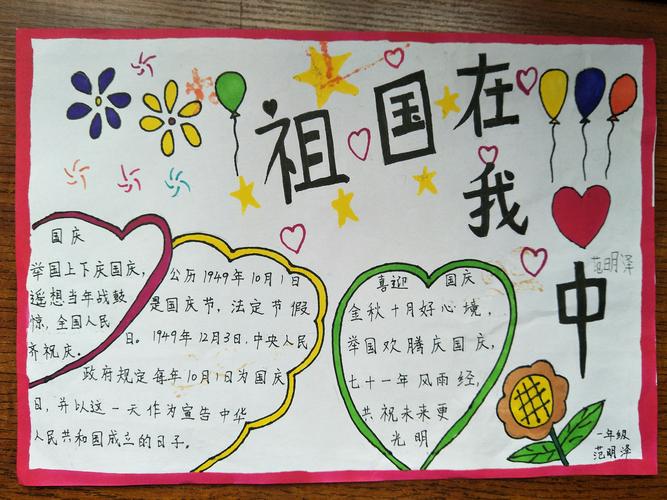 祖国在我
中
范明泽
国庆
举国上下庆国庆，
遥想当年战鼓
惊，全国人民
齐祝庆。
公历1949年10月1日
是国庆节，法定节假
日。1949年12月3日，中央人民
政府规定每年10月1日为国庆
日，并以这一天作为宣告中华
人民共和国成立的日子。
喜迎 国庆
金秋十月好心境，
举国欢腾庆国庆，
七十一年风雨经，
共祝未来更
光明
一年级
范明泽